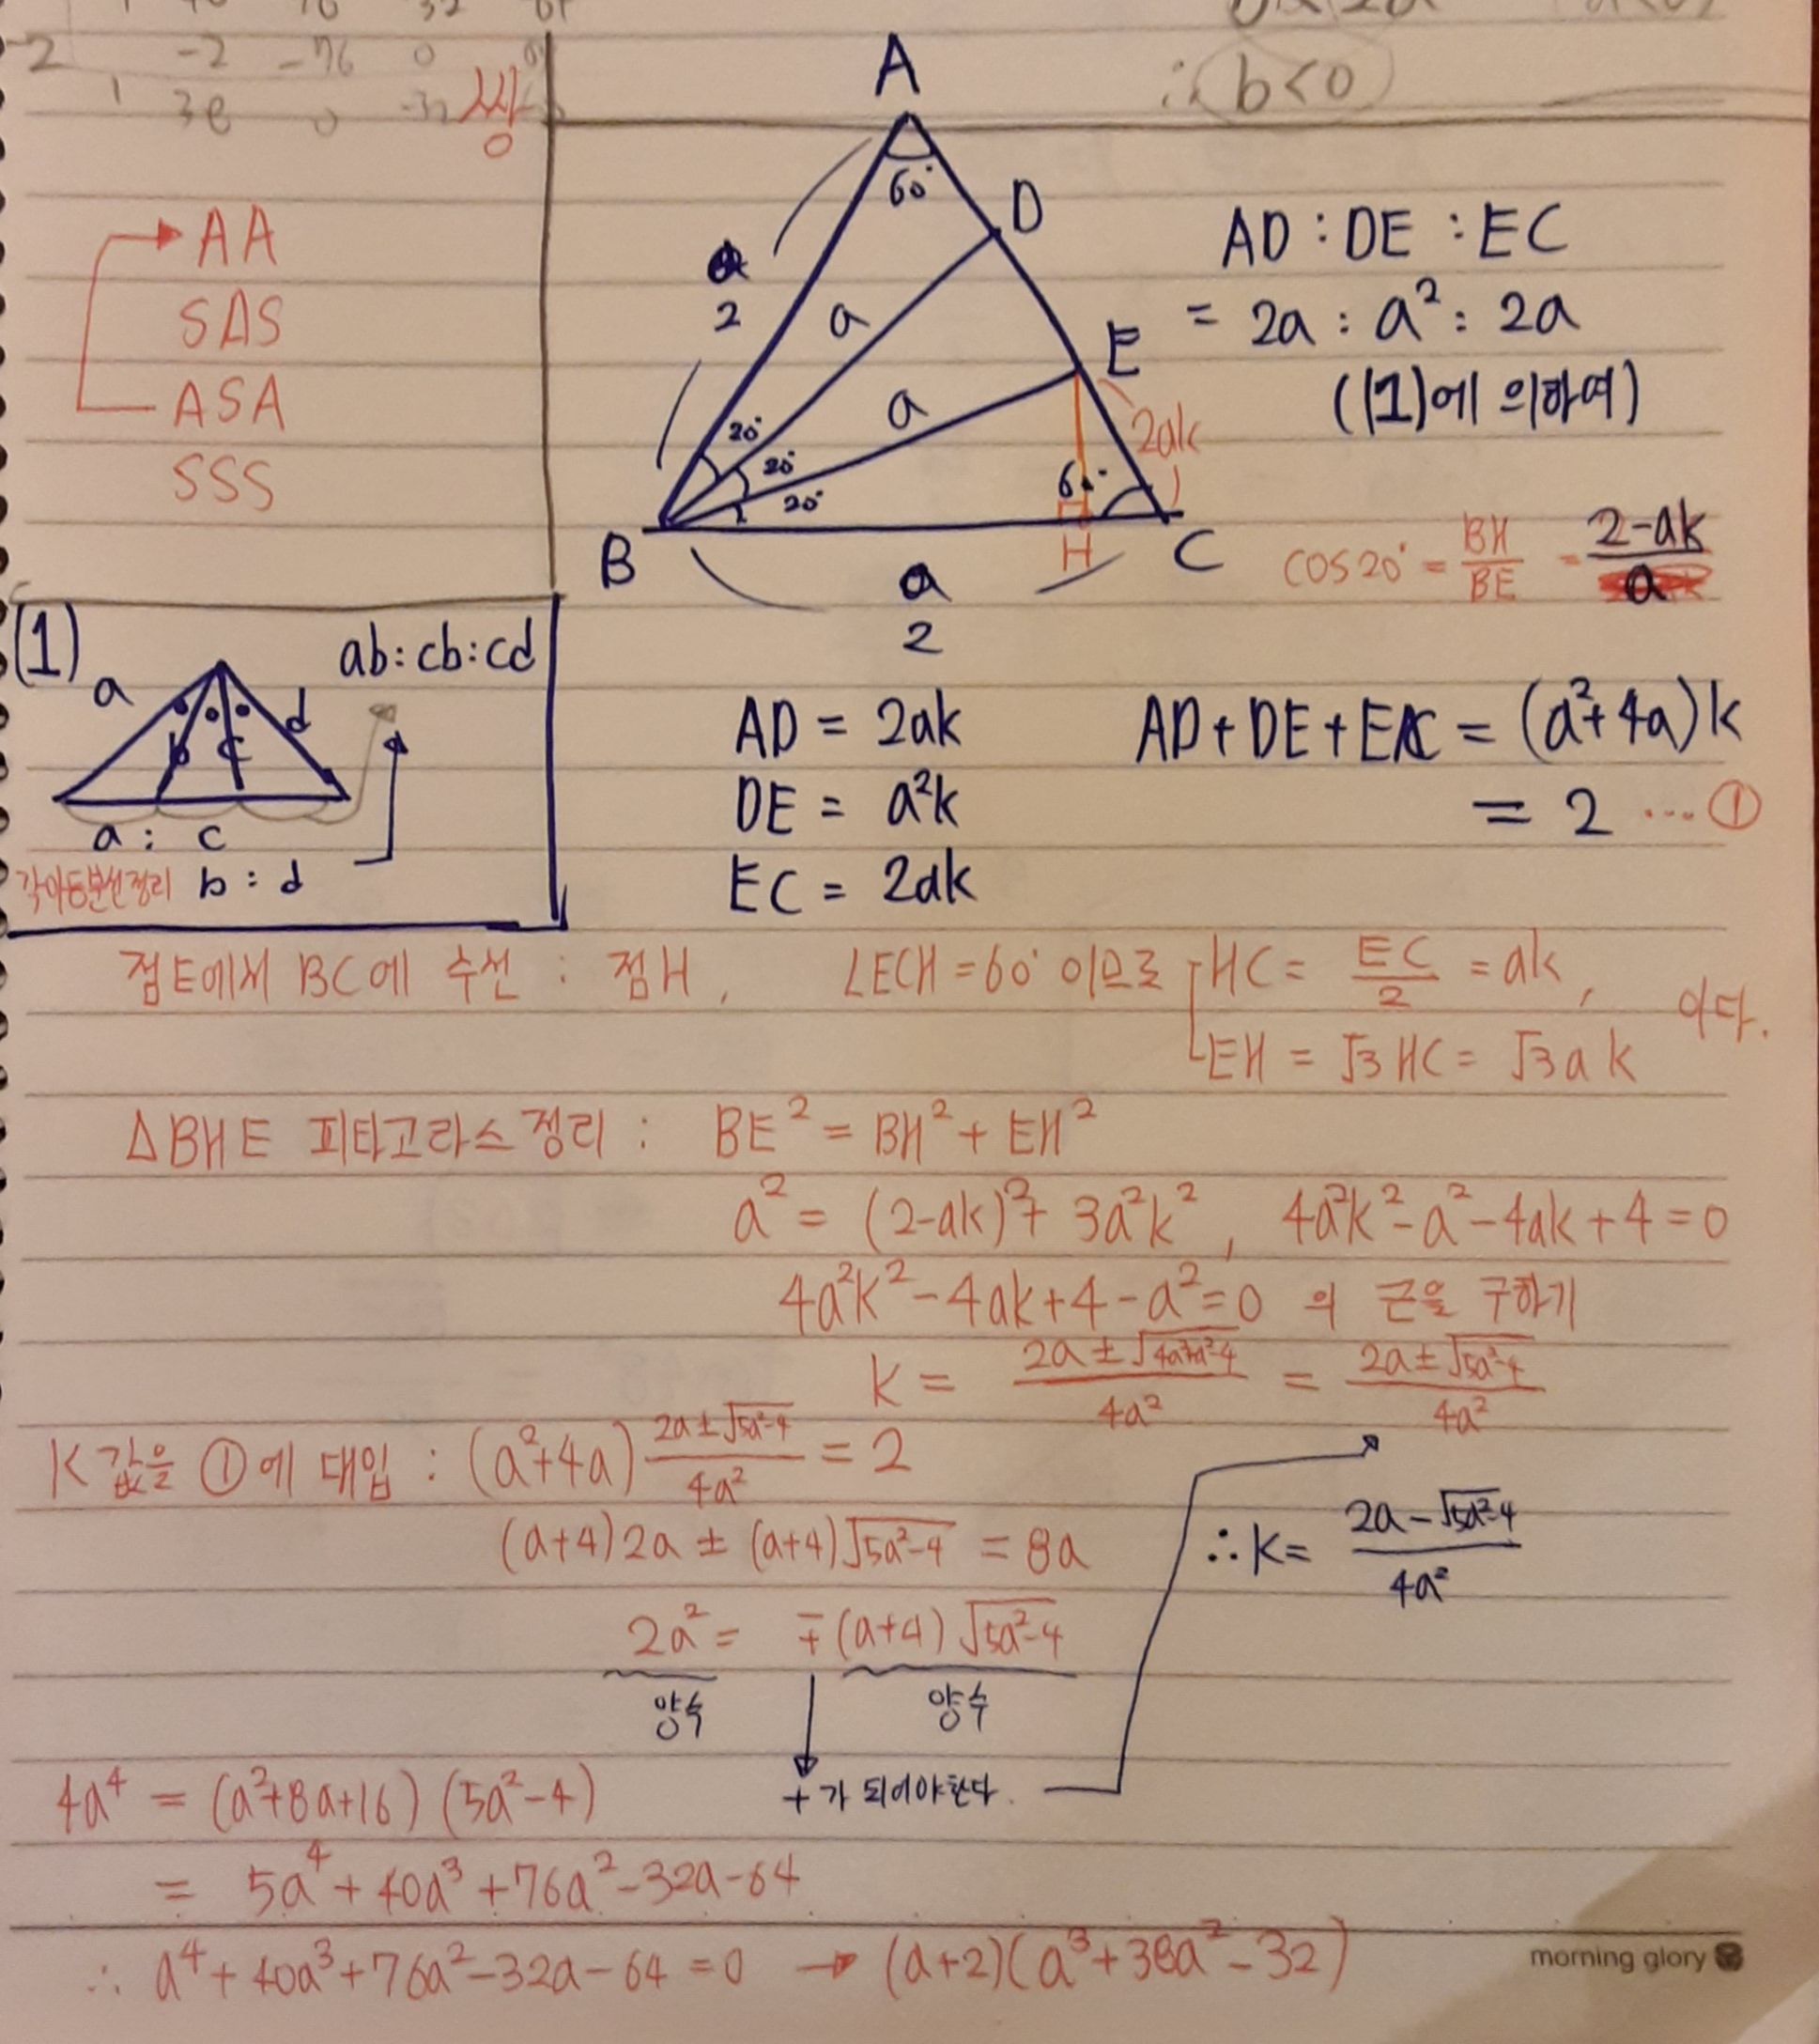 -2 -2 -76 0
1 38 0 -32
∴ b<0
AA
SAS
ASA
SSS
A
60°
D
2
a
E
a
20°
20°
20°
2ak
60°
B
H
C
a
2
AD : DE : EC
= 2a : a² : 2a
((1)에 의하여)
cos20° = BH/BE = (2-ak)/a
(1)
ab:cb:cd
a
b
c
d
a : c
각이등분선정리 b : d
AD = 2ak
DE = a²k
EC = 2ak
AD+DE+EC = (a²+4a)k
= 2 ... ①
점E에서 BC에 수선 : 점H, ∠ECH=60° 이므로 HC = EC/2 = ak, 이다.
EH = √3 HC = √3 a k
△BHE 피타고라스정리 : BE² = BH² + EH²
a² = (2-ak)² + 3a²k², 4a²k²-a²-4ak+4=0
4a²k²-4ak+4-a²=0 의 근을 구하기
k = (2a±√(4a²+a²-4))/4a² = (2a±√(5a²-4))/4a²
K값을 ①에 대입 : (a²+4a) (2a±√(5a²-4))/4a² = 2
(a+4)2a ± (a+4)√(5a²-4) = 8a
∴ k = (2a-√(5a²-4))/4a²
2a² = ∓(a+4)√(5a²-4)
양수
양수
+가 되어야한다.
4a⁴ = (a²+8a+16)(5a²-4)
= 5a⁴+40a³+76a²-32a-64
∴ a⁴+40a³+76a²-32a-64=0 → (a+2)(a³+38a²-32)
morning glory